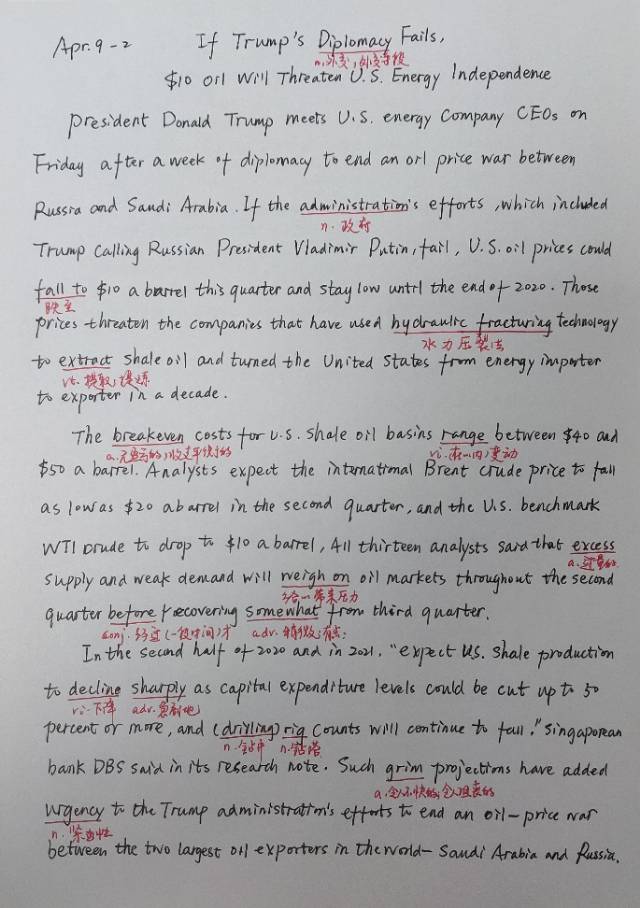 Apr. 9 - 2 If Trump's Diplomacy Fails,
n. 外交; 外交手段
$10 Oil Will Threaten U.S. Energy Independence
president Donald Trump meets U.S. energy Company CEOs on
Friday after a week of diplomacy to end an oil price war between
Russia and Saudi Arabia. If the administration's efforts, which included
n. 政府
Trump Calling Russian President Vladimir Putin, fail, U.S. oil prices could
fall to $10 a barrel this quarter and stay low until the end of 2020. Those
跌至
prices threaten the companies that have used hydraulic fracturing technology
水力压裂法
to extract shale oil and turned the United States from energy importer
vt. 提取; 提炼
to exporter in a decade.
The breakeven costs for U.S. shale oil basins range between $40 and
a. 无盈亏的; 收支平衡的 vi. 在…内变动
$50 a barrel. Analysts expect the international Brent crude price to fall
as low as $20 a barrel in the second quarter, and the U.S. benchmark
WTI crude to drop to $10 a barrel, All thirteen analysts said that excess
a. 过量的
supply and weak demand will weigh on oil markets throughout the second
给…带来压力
quarter before recovering somewhat from third quarter.
conj. 经过(一段时间)才 adv. 稍微; 有点
In the second half of 2020 and in 2021, "expect U.S. shale production
to decline sharply as capital expenditure levels could be cut up to 50
vi. 下降 adv. 急剧地
percent or more, and (drilling) rig counts will continue to fall." Singaporean
n. 钻井 n. 钻塔
bank DBS said in its research note. Such grim projections have added
a. 令人不快的; 令人沮丧的
urgency to the Trump administration's efforts to end an oil-price war
n. 紧迫性
between the two largest oil exporters in the world - Saudi Arabia and Russia.